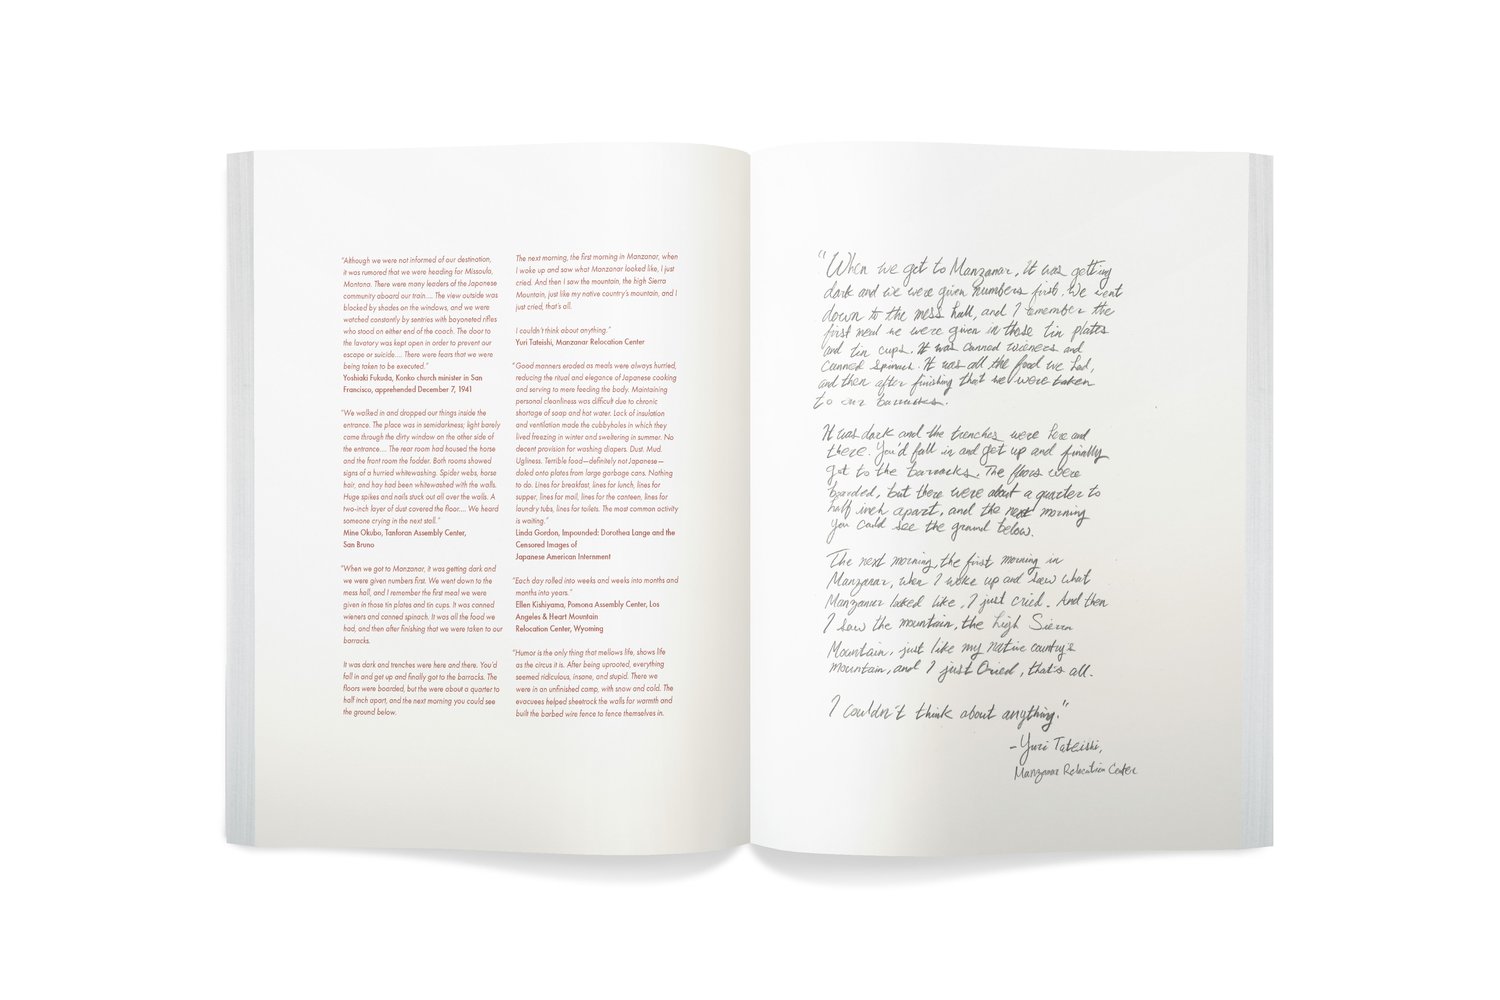 "Although we were not informed of our destination,
it was rumored that we were heading for Missoula,
Montana. There were many leaders of the Japanese
community aboard our train.... The view outside was
blocked by shades on the windows, and we were
watched constantly by sentries with bayoneted rifles
who stood on either end of the coach. The door to
the lavatory was kept open in order to prevent our
escape or suicide.... There were fears that we were
being taken to be executed."
Yoshiaki Fukuda, Konko church minister in San
Francisco, apprehended December 7, 1941
"We walked in and dropped our things inside the
entrance. The place was in semidarkness; light barely
came through the dirty window on the other side of
the entrance.... The rear room had housed the horse
and the front room the fodder. Both rooms showed
signs of a hurried whitewashing. Spider webs, horse
hair, and hay had been whitewashed with the walls.
Huge spikes and nails stuck out all over the walls. A
two-inch layer of dust covered the floor.... We heard
someone crying in the next stall."
Mine Okubo, Tanforan Assembly Center,
San Bruno
"When we got to Manzanar, it was getting dark and
we were given numbers first. We went down to the
mess hall, and I remember the first meal we were
given in those tin plates and tin cups. It was canned
wieners and canned spinach. It was all the food we
had, and then after finishing that we were taken to our
barracks.
It was dark and trenches were here and there. You'd
fall in and get up and finally got to the barracks. The
floors were boarded, but the were about a quarter to
half inch apart, and the next morning you could see
the ground below.
The next morning, the first morning in Manzanar, when
I woke up and saw what Manzanar looked like, I just
cried. And then I saw the mountain, the high Sierra
Mountain, just like my native country's mountain, and I
just cried, that's all.
I couldn't think about anything."
Yuri Tateishi, Manzanar Relocation Center
"Good manners eroded as meals were always hurried,
reducing the ritual and elegance of Japanese cooking
and serving to mere feeding the body. Maintaining
personal cleanliness was difficult due to chronic
shortage of soap and hot water. Lack of insulation
and ventilation made the cubbyholes in which they
lived freezing in winter and sweltering in summer. No
decent provision for washing diapers. Dust. Mud.
Ugliness. Terrible food—definitely not Japanese—
doled onto plates from large garbage cans. Nothing
to do. Lines for breakfast, lines for lunch, lines for
supper, lines for mail, lines for the canteen, lines for
laundry tubs, lines for toilets. The most common activity
is waiting."
Linda Gordon, Impounded: Dorothea Lange and the
Censored Images of
Japanese American Internment
"Each day rolled into weeks and weeks into months and
months into years."
Ellen Kishiyama, Pomona Assembly Center, Los
Angeles & Heart Mountain
Relocation Center, Wyoming
"Humor is the only thing that mellows life, shows life
as the circus it is. After being uprooted, everything
seemed ridiculous, insane, and stupid. There we
were in an unfinished camp, with snow and cold. The
evacuees helped sheetrock the walls for warmth and
built the barbed wire fence to fence themselves in.
"When we got to Manzanar, it was getting
dark and we were given numbers first. We went
down to the mess hall, and I remember the
first meal we were given in those tin plates
and tin cups. It was canned wieners and
canned spinach. It was all the food we had,
and then after finishing that we were taken
to our barracks.
It was dark and the trenches were here and
there. You'd fall in and get up and finally
got to the barracks. The floors were
boarded, but there were about a quarter to
half inch apart, and the next morning
you could see the ground below.
The next morning, the first morning in
Manzanar, when I woke up and saw what
Manzanar looked like, I just cried. And then
I saw the mountain, the high Sierra
Mountain, just like my native country's
mountain, and I just cried, that's all.
I couldn't think about anything."
- Yuri Tateishi,
Manzanar Relocation Center